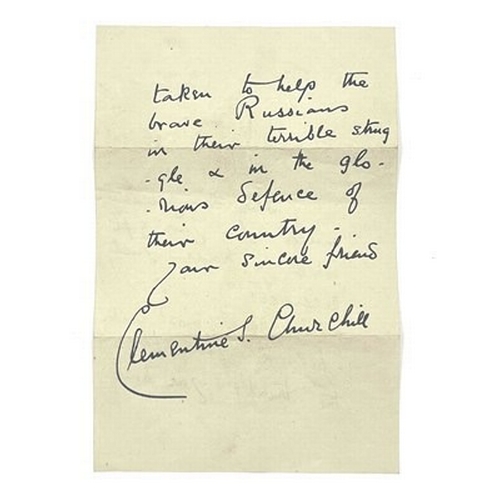 taken to help the
brave Russians
in their terrible strug
-gle & in the glo-
-rious defence of
their country.
Your sincere friend
Clementine S. Churchill